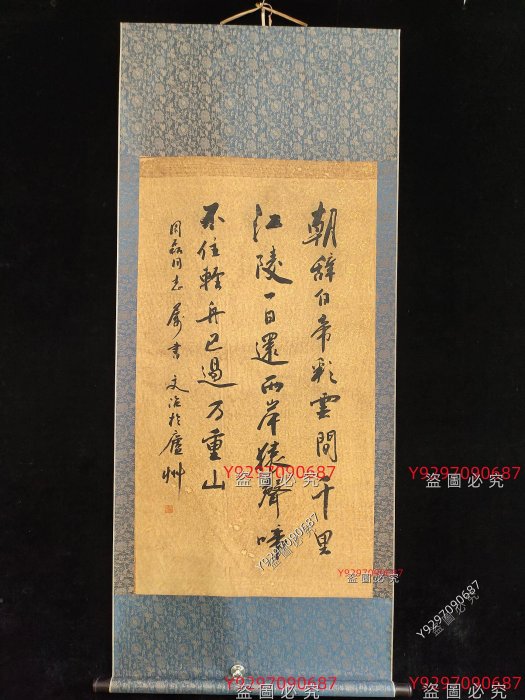 朝辞白帝彩雲間千里
江陵一日還両岸猿聲啼
不住軽舟已過万重山
同志属書 文治於廬州
Y9297090687
盜圖必究
Y9297090687
盜圖必究
Y9297090687
盜圖必究
Y9297090687
盜圖必究
Y9297090687
盜圖必究
Y9297090687
盜圖必究
Y9297090687
盜圖必究